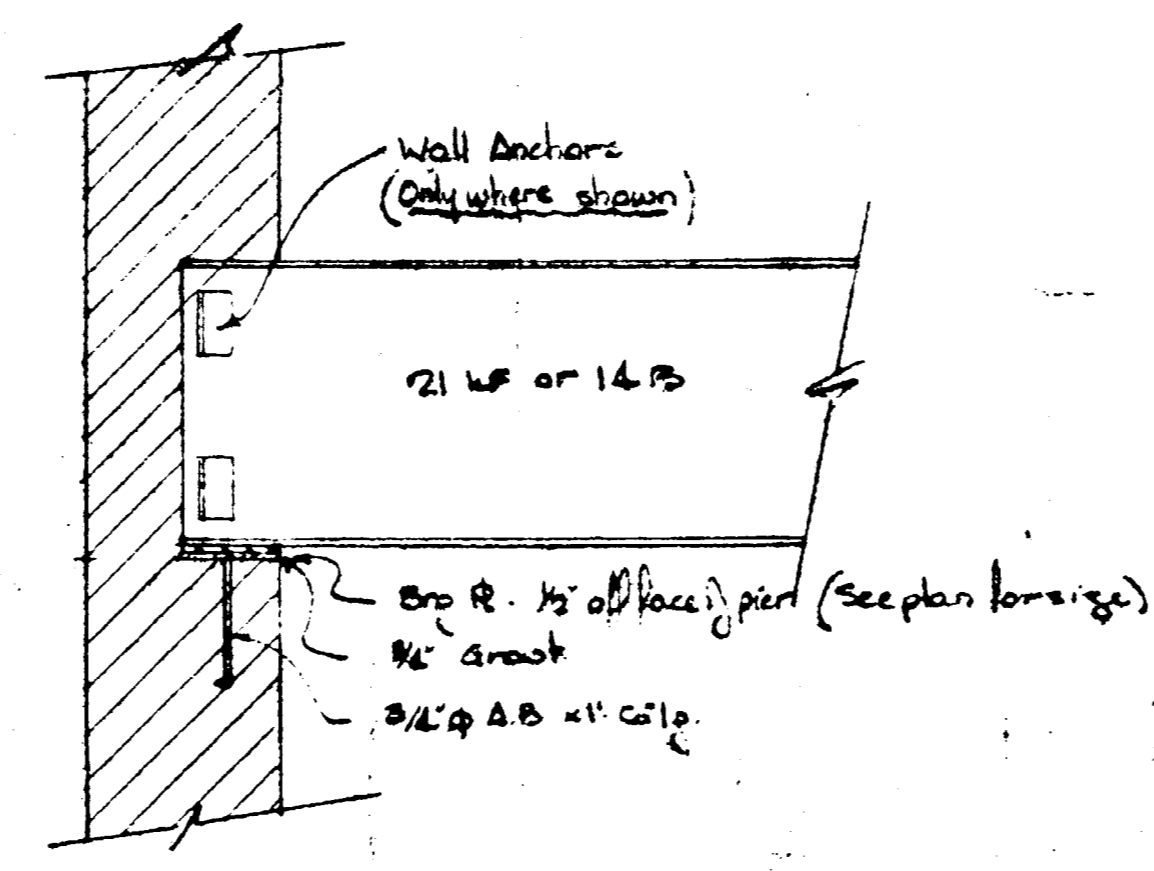 Wall Anchors
(Only where shown)
21 WF or 14 B
Brg ℄. ½" off face of pier (See plan for size)
¾" Grout
3/4" ϕ A.B x 1'-6" lg.